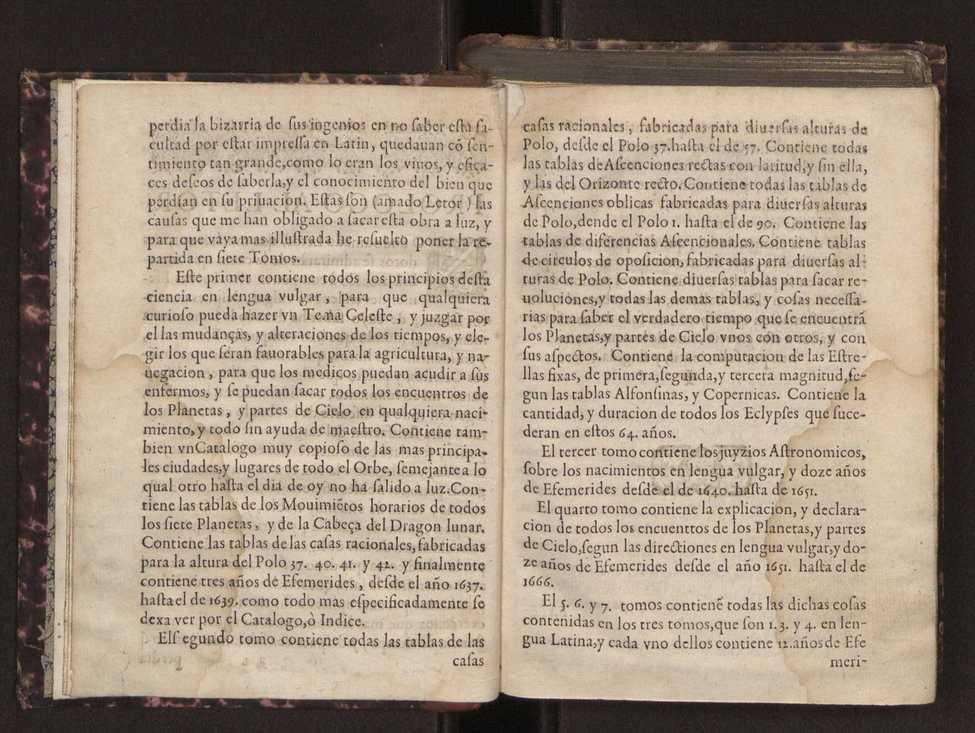 perdia la bizarria de sus ingenios en no saber esta fa-
cultad por estar impressa en Latin, quedauan cõ sen-
timiento tan grande, como lo eran los viuos, y efica-
ces deseos de saberla, y el conocimiento del bien que
perdian en su priuacion. Estas son (amado Letor) las
causas que me han obligado a sacar esta obra a luz, y
para que vaya mas illustrada he resuelto poner la re-
partida en siete Tomos.
Este primer contiene todos los principios desta
ciencia en lengua vulgar, para que qualquiera
curioso pueda hazer vn Tema Celeste, y juzgar por
el las mudanças, y alteraciones de los tiempos, y ele-
gir los que seran fauorables para la agricultura, y na-
uegacion, para que los medicos puedan acudir a sus
enfermos, y se puedan sacar todos los encuentros de
los Planetas, y partes de Cielo en qualquiera naci-
miento, y todo sin ayuda de maestro. Contiene tam-
bien vnCatalogo muy copioso de las mas principa-
les ciudades, y lugares de todo el Orbe, semejante a lo
qual otro hasta el dia de oy no ha salido a luz. Con-
tiene las tablas de los Mouimiẽtos horarios de todos
los siete Planetas, y de la Cabeça del Dragon lunar.
Contiene las tablas de las casas racionales, fabricadas
para la altura del Polo 37. 40. 41. y 42. y finalmente
contiene tres años de Efemerides, desde el año 1637.
hasta el de 1639. como todo mas especificadamente se
dexa ver por el Catalogo, ò Indice.
Els egundo tomo contiene todas las tablas de las
casas
casas racionales, fabricadas para diuersas alturas de
Polo, desde el Polo 37. hasta el de 57. Contiene todas
las tablas de Ascenciones rectas con latitud, y sin ella,
y las del Orizonte recto. Contiene todas las tablas de
Ascenciones oblicas fabricadas para diuersas alturas
de Polo, dende el Polo 1. hasta el de 90. Contiene las
tablas de diferencias Ascencionales. Contiene tablas
de circulos de oposicion, fabricadas para diuersas al-
turas de Polo. Contiene diuersas tablas para sacar re-
uoluciones, y todas las demas tablas, y cosas necessa-
rias para saber el verdadero tiempo que se encuentrã
los Planetas, y partes de Cielo vnos con otros, y con
sus aspectos. Contiene la computacion de las Estre-
llas fixas, de primera, segunda, y tercera magnitud, se-
gun las tablas Alfonsinas, y Copernicas. Contiene la
cantidad, y duracion de todos los Eclypses que suce-
deran en estos 64. años.
El tercer tomo contiene los juyzios Astronomicos,
sobre los nacimientos en lengua vulgar, y doze años
de Efemerides desde el de 1640. hasta de 1651.
El quarto tomo contiene la explicacion, y declara-
cion de todos los encuentros de los Planetas, y partes
de Cielo, segun las directiones en lengua vulgar, y do-
ze años de Efemerides desde el año 1651. hasta el de
1666.
El 5. 6. y 7. tomos contienẽ todas las dichas cosas
contenidas en los tres tomos, que son 1. 3. y 4. en len-
gua Latina, y cada vno dellos contiene 12. años de Efe
meri-